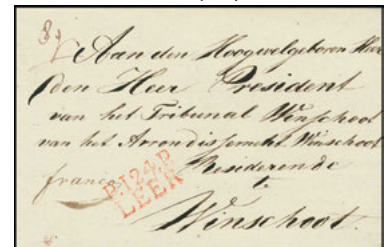 Aan den Hoogwelgeboren Heer
den Heer President
van het Tribunal Winschoot
van het Arrondissement Winschoot
Residerende
franco
P.124.P.
LEER
t.
Winschoot.